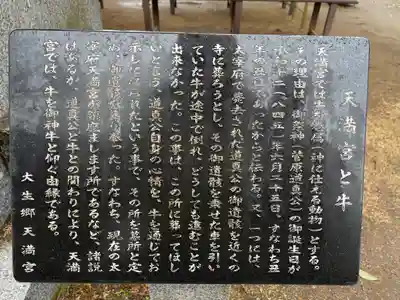 天満宮と牛
天満宮では牛を神使(神に仕える動物)とする。
その理由は、御祭神(菅原道真公)の御誕生日が
承和十二(八四五)年六月二十五日、すなわち丑
年の丑日であったからと伝える。又、一つには、
太宰府で薨去された道真公の御遺骸を近くの
寺に葬ろうとし、その御遺骸を乗せた車を引い
ていた牛が途中で倒れ、どうしても進むことが
出来なかった。この事は、この所に葬ってほし
いと言う、道真公自身の心情を、牛を通じてお
示しになられたという事で、その所を墓所と定
め、御遺骸を葬り奉った。すなわち、現在の太
宰府天満宮が鎮座まします所であるなど、諸説
はあるが、道真公と牛との関わりにより、天満
宮では、牛を御神牛と仰ぐ由縁である。
大生郷天満宮